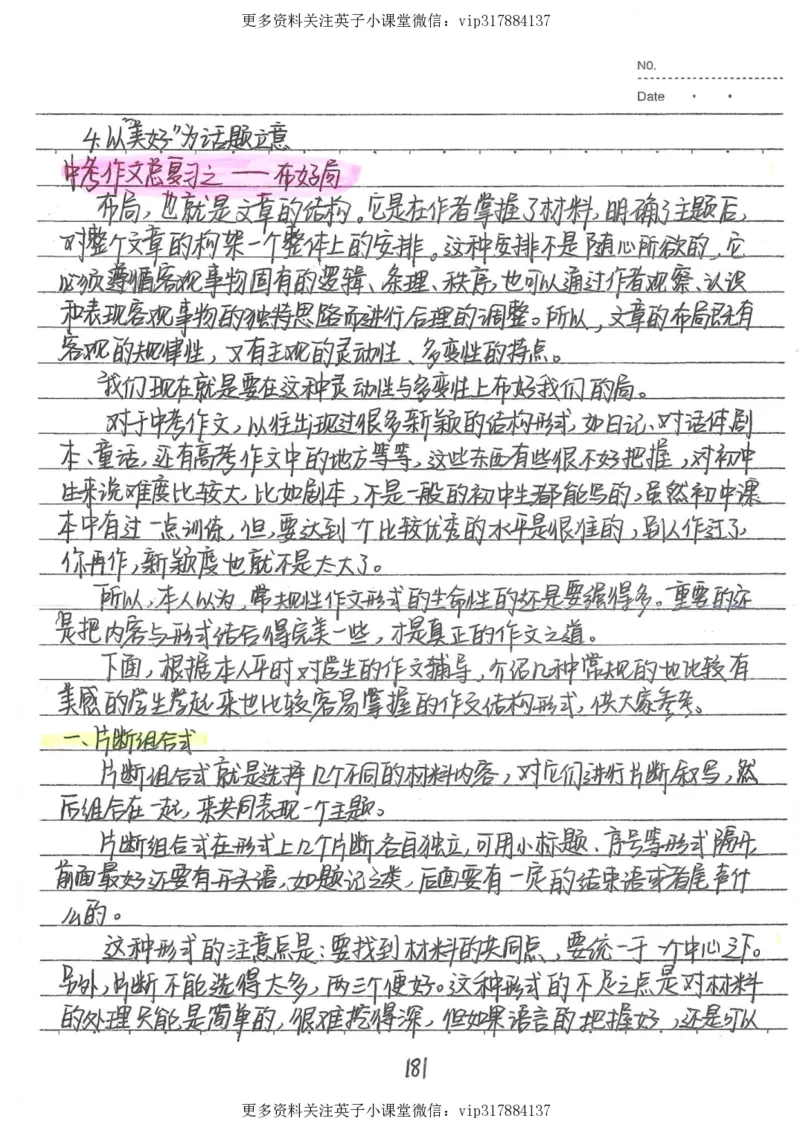 更多资料关注英子小课堂微信：vip317884137
NO.
Date
4.以"美好"为话题立意
中考作文总复习之——布好局
布局，也就是文章的结构。它是在作者掌握了材料，明确了主题后，
对整个文章的构架一个整体上的安排。这种安排不是随心所欲的，它
必须遵循客观事物固有的逻辑、条理、秩序，也可以通过作者观察、认识
和表现客观事物的独特思路而进行合理的调整。所以，文章的布局既有
客观的规律性，又有主观的灵动性、多变性的特点。
我们现在就是要在这种灵动性与多变性上布好我们的局。
对于中考作文，以往出现过很多新颖的结构形式，如日记、对话体剧
本、童话，还有高考作文中的地方等等，这些东西有些很不好把握，对初中
生来说难度比较大，比如剧本，不是一般的初中生都能写的，虽然初中课
本中有过一点训练，但，要达到一个比较优秀的水平是很难的，别人作过了，
你再作，新颖度也就不是太大了。
所以，本人以为，常规性作文形式的生命性的还是要强得多。重要的还
是把内容与形式结合得完美一些，才是真正的作文之道。
下面，根据本人平时对学生的作文辅导，介绍几种常规的也比较有
美感的学生学起来也比较容易掌握的作文结构形式，供大家参考。
一、片断组合式
片断组合式就是选择几个不同的材料内容，对它们进行片断叙写，然
后组合在一起，来共同表现一个主题。
片断组合式在形式上几个片断各自独立，可用小标题、序号等形式隔开，
前面最好还要有开头语，如题记之类，后面要有一定的结束语或者尾声什
么的。
这种形式的注意点是：要找到材料的共同点，要统一于一个中心之下。
另外，片断不能选得太多，两三个便好。这种形式的不足之点是对材料
的处理只能是简单的，很难挖得深，但如果语言的把握好，还是可以
181
更多资料关注英子小课堂微信：vip317884137